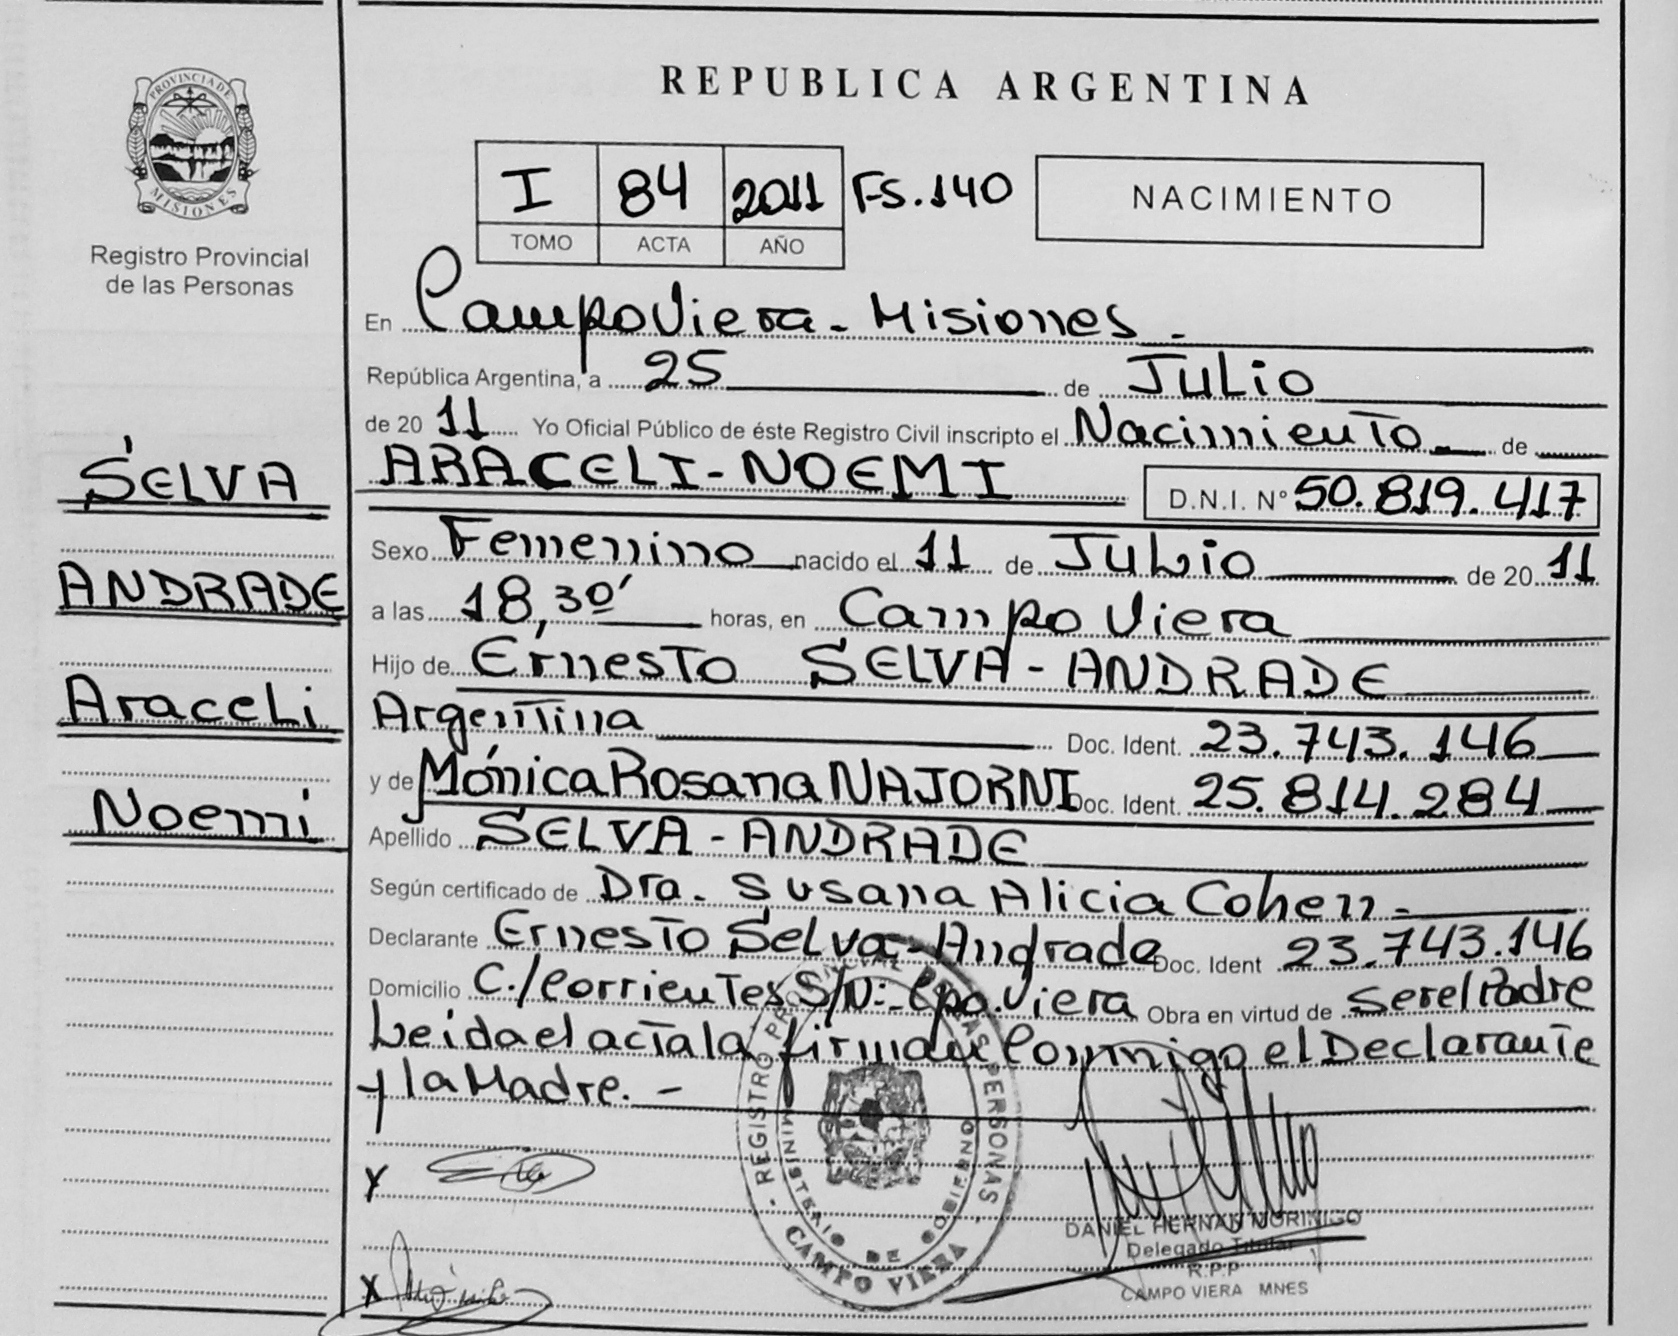 PROVINCIA DE
MISIONES
Registro Provincial
de las Personas
SELVA
ANDRADE
Araceli
Noemi
REPUBLICA ARGENTINA
I 84 2011 FS.140
TOMO ACTA AÑO
NACIMIENTO
En Campo Viera - Misiones -
República Argentina, a 25 de Julio
de 2011 Yo Oficial Público de éste Registro Civil inscripto el Nacimiento de
ARACELI-NOEMI D.N.I. N° 50.819.417
Sexo Femenino nacido el 11 de Julio de 2011
a las 18,30' horas, en Campo Viera
Hijo de Ernesto SELVA-ANDRADE
Argentina Doc. Ident. 23.743.146
y de Mónica Rosana NAJORNI Doc. Ident. 25.814.284
Apellido SELVA-ANDRADE
Según certificado de Dra. Susana Alicia Cohen -
Declarante Ernesto Selva-Andrade Doc. Ident 23.743.146
Domicilio C./Corrientes S/N:- Cpo. Viera Obra en virtud de Ser el Padre
Leida el acta la firman Conmigo el Declarante
y la Madre. -
REGISTRO PROVINCIAL DE LAS PERSONAS
MINISTERIO DE GOBIERNO
CAMPO VIERA
X
X
DANIEL HERNAN MORINIGO
Delegado Titular
R.P.P
CAMPO VIERA MNES